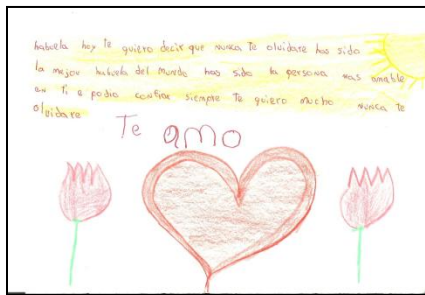 habuela hoy te quiero decir que nunca te olvidare has sido
la mejor habuela del mundo has sido la persona mas amable
en ti e podio confiar siempre te quiero mucho nunca te
olvidare
Te amo